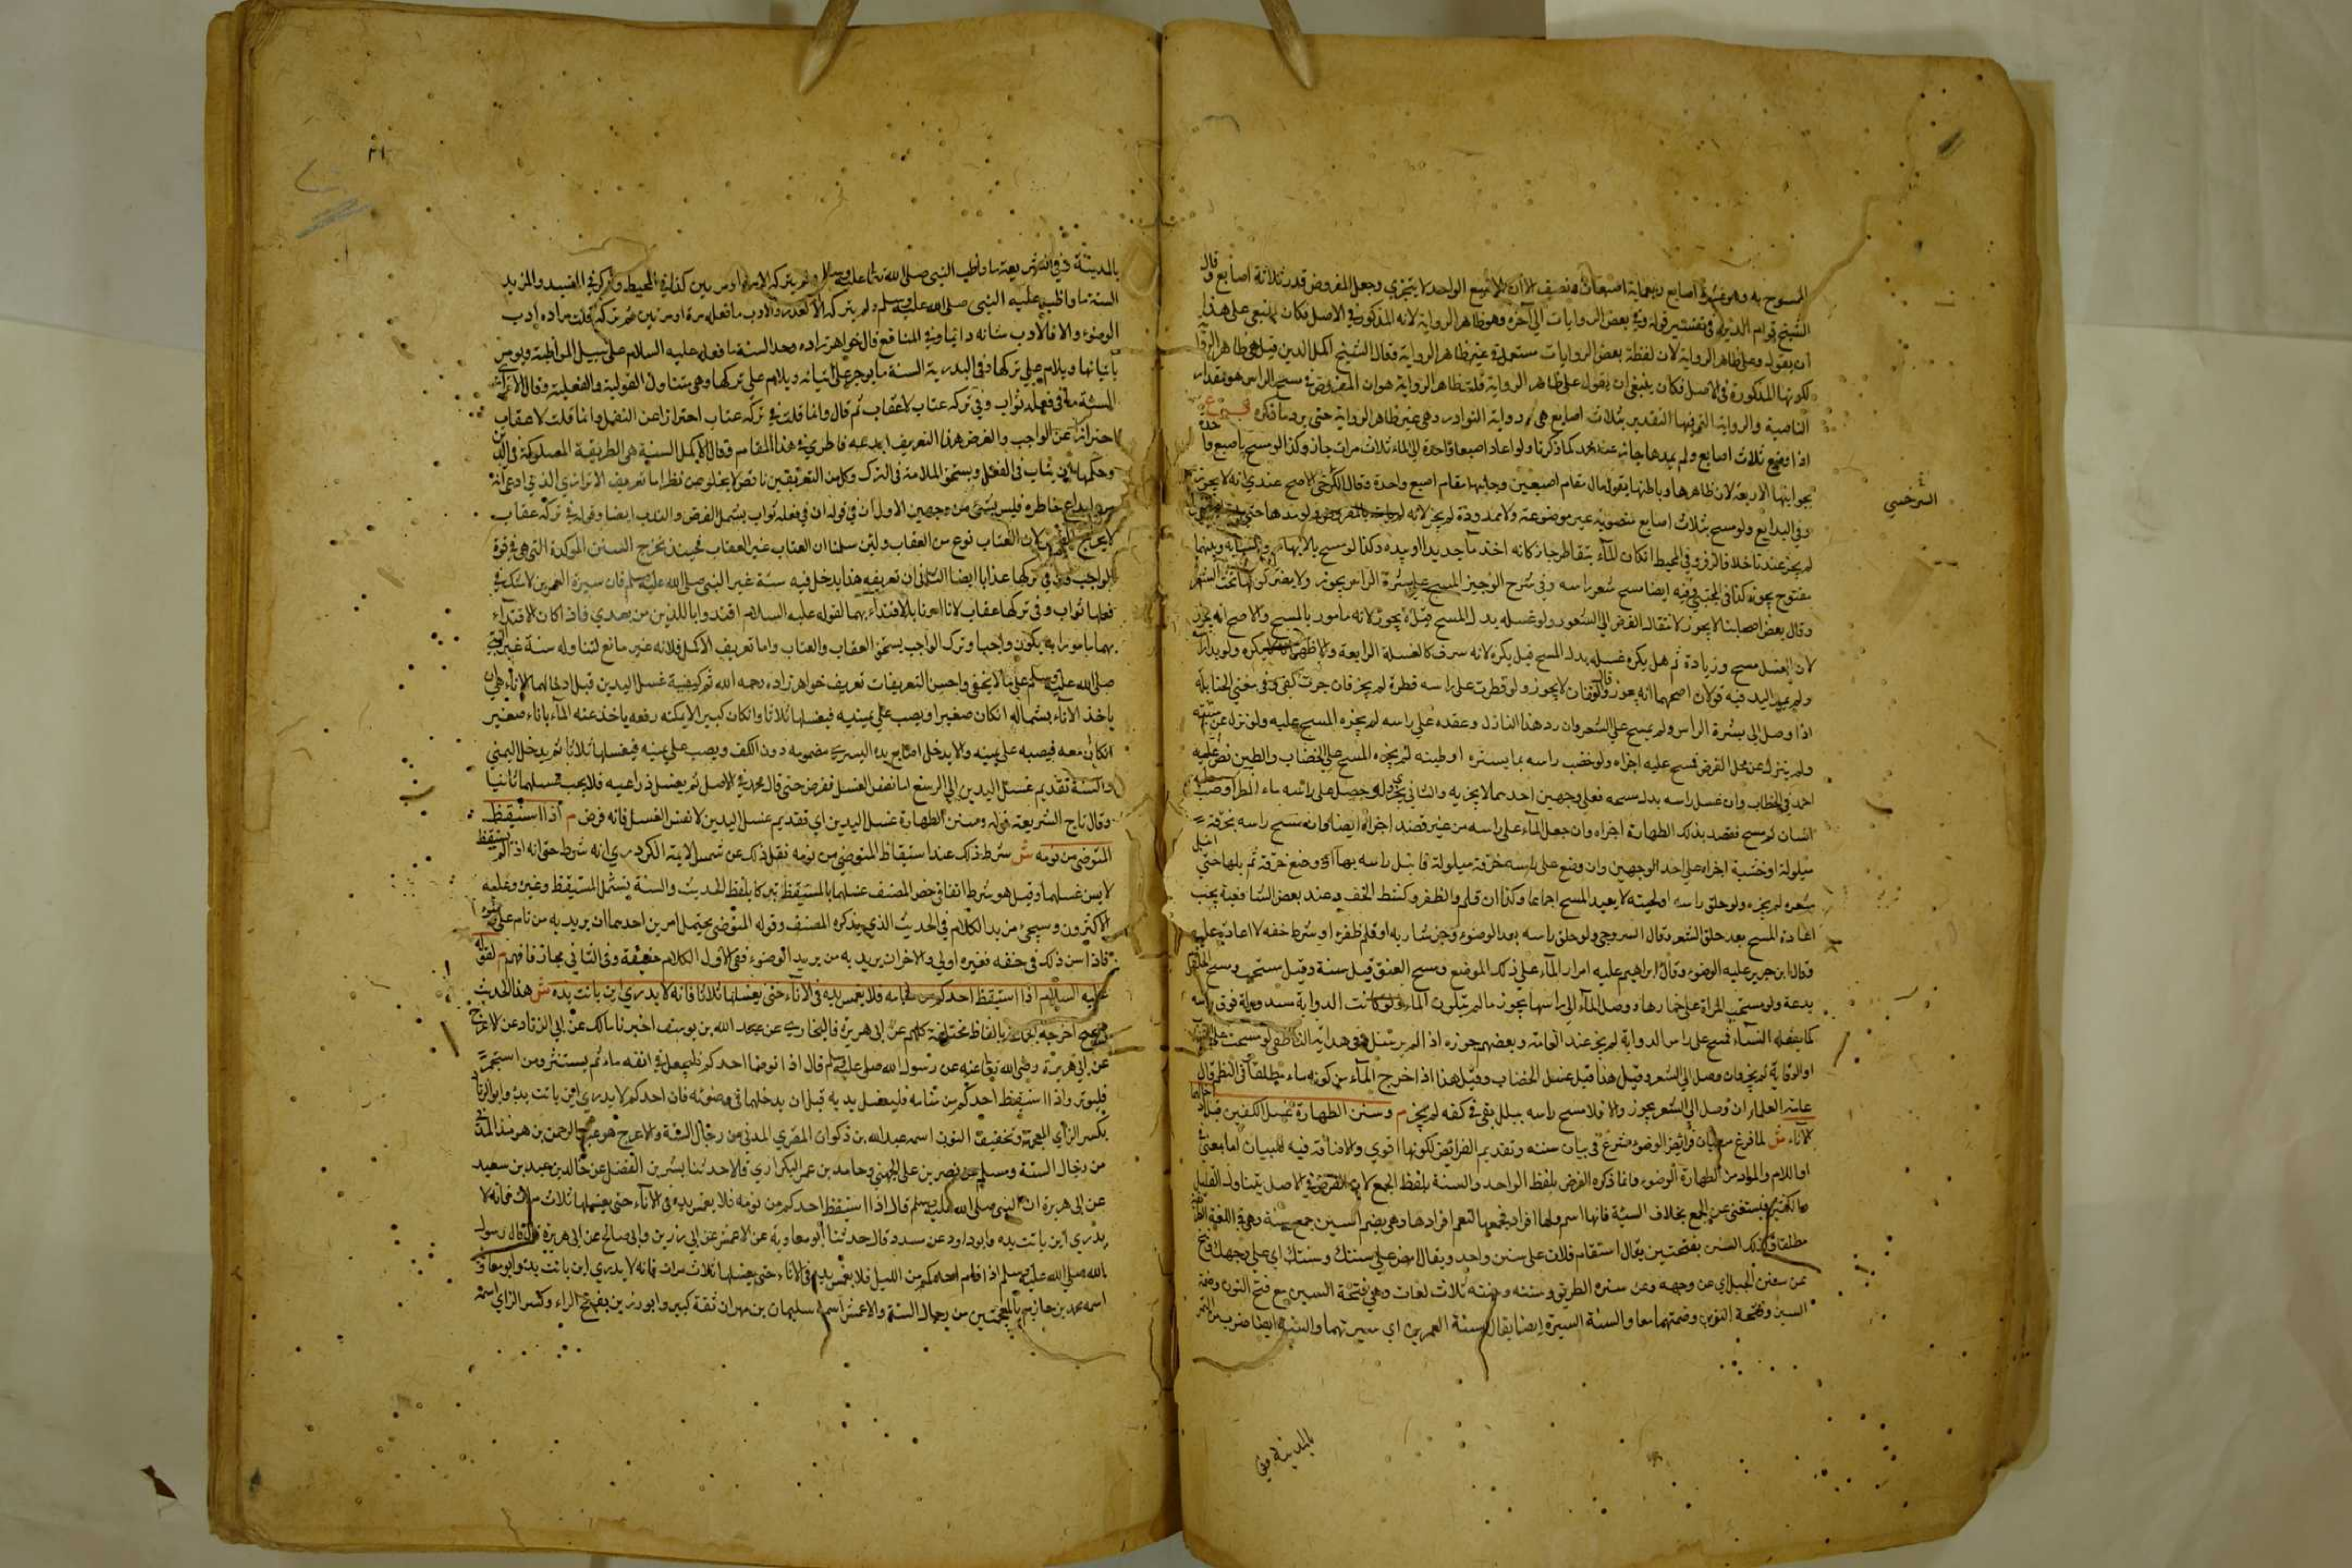 الممسوح به وهو عشرة اصابع وربعها اصبعان ونصف الا ان الاصبع الواحد لا يتجزى وجعل المفروض قدر ثلاثة اصابع وقال
الشيخ قوام الدين في تفسير قوله وفي بعض الروايات الى آخره وهو ظاهر الرواية لانه المذكور في الاصل فكان ينبغي على هذا
ان يقول وعلى ظاهر الرواية لان لفظة بعض الروايات مستعملة في غير ظاهر الرواية فقال الشيخ اكمل الدين قيل هي ظاهر الرواية
لكونها المذكورة في الاصل فكان ينبغي ان يقول على ظاهر الرواية قلت ظاهر الرواية هو ان المفروض في مسح الراس هو مقدار
الناصية والرواية التي فيها التقدير بثلاث اصابع هي رواية النوادر وهي غير ظاهر الرواية حتى يرد ما ذكره
اذا وضع ثلاث اصابع ولم يمدها جاز عند محمد كما ذكرنا ولو اعاد اصبعا واحدة الى الماء ثلاث مرات جاز وكذا لو مسح باصبع واحدة
بجوانبها الاربعة لان ظاهرها وباطنها يقومان مقام اصبعين وجانبها مقام اصبع واحدة وقال الكرخي الاصح عندي انه لا يجوز
السرخسي
وفي البدايع ولو مسح بثلاث اصابع منصوبة غير موضوعة ولا ممدودة لم يجز لانه لم يات بالمفروض ولو مدها حتى
لم يجز عندنا خلافا لزفر وفي المحيط ان كان الماء يتقاطر جاز كانه اخذ ماء جديدا او بيده وكذا لو مسح بالابهام والسبابة وبينهما
مفتوح يجوز كذا في المجتبى وفيه ايضا مسح شعر راسه وفي شرح الوجيز المسح على بشرة الراس يجوز ولا يضر كونها تحت الشعر
وقال بعض اصحابنا لا يجوز لانتقال الفرض الى الشعور ولو غسله بدل المسح قيل لا يجوز لانه مامور بالمسح والاصح انه يجوز
لان الغسل مسح وزيادة ثم هل يكره غسله بدل المسح قيل يكره لانه سرف كالغسلة الرابعة والاظهر انه لا يكره ولو بل راسه
ولم يمد اليد فيه قولان اصحهما انه يجوز وقال القفال لا يجوز ولو قطرت على راسه قطرة لم يجز فان جرت كفى وفي مغني الحنابلة
اذا وصل الى بشرة الراس ولم يمسح على الشعر وان رد هذا النازل وعقده على راسه لم يجزه المسح عليه ولو نزل عن منبته
ولم ينزل عن محل الفرض فمسح عليه اجزاه ولو خضب راسه بما يستره او طينه لم يجزه المسح على الخضاب والطين نص عليه
احمد في الخضاب وان غسل راسه بدل مسحه فعلى وجهين احدهما لا يجزيه والثاني يجزئه ولو حصل على راسه ماء المطر او صب
انسان ثم مسح فقصد بذلك الطهارة اجزاه وان جعل الماء على راسه من غير قصد اجزاه ايضا وان مسح راسه بخرقة
مبلولة او خشبة اجزاه على احد الوجهين وان وضع على راسه خرقة مبلولة فابتل راسه بها او وضع خرقة ثم بلها حتى ابتل
شعره لم يجزه ولو حلق راسه او لحيته لا يعيد المسح اجماعا وكذا ان قلم الظفر وكشط الخف وعند بعض الشافعية يجب
اعادة المسح بعد حلق الشعر وقال السروجي ولو حلق راسه بعد الوضوء وجز شاربه او قلم ظفره او شرط خفه لا اعادة عليه
وقال ابن جرير عليه الوضوء وقال ابراهيم عليه امرار الماء على ذلك الموضع ومسح العنق قيل سنة وقيل مستحب ومسح الحلقوم
بدعة ولو مسحت المراة على خمارها ووصل الماء الى راسها يجوز ما لم يتلون الماء ولو كانت الذوابة مسدولة فوق راسه
كما يفعله النساء فمسح على راس الذوابة لم يجز عند العامة وبعضهم جوزه اذا لم يرسل وفي هداية الناطفي لو مسحت على الخضاب
او الوقاية لم يجز وان وصل الى الشعر وقيل هذا قبل غسل الخضاب وقيل هذا اذا خرج الماء من كونه ماء مطلقا وفي النظم قال
عامة العلماء ان وصل الى الشعر يجوز والا فلا مسح راسه ببلل بقي في كفه لم يجز م وسنن الطهارة غسل اليدين قبل ادخالهما
الاناء ش لما فرغ من بيان فرائض الوضوء شرع في بيان سننه وتقديم الفرائض لكونها اقوى والاضافة فيه للبيان اما بمعنى في
او اللام والمراد من الطهارة الوضوء وانما ذكره الفرض بلفظ الواحد والسنة بلفظ الجمع لان الفرض في الاصل يتناول القليل
والكثير فيستغنى عن الجمع بخلاف السنة فانها اسم ولها افراد فجمعها لتعم افرادها وهي بضم السين جمع سنة وهي في اللغة الطريقة
مطلقا وكذلك السنن بفتحتين يقال استقام فلان على سنن واحد ويقال امض على سننك وسننك اي على وجهك وتنح
عن سنن الجبل اي عن وجهه وعن سنن الطريق وسننه وسننه ثلاث لغات وهي بفتحة السين مع فتح النون وضمة
السين وفتحة النون وضمتهما معا والسنة السيرة ايضا يقال سنة العمرين اي سيرتهما والسنة ايضا ضرب من التمر
بالمدينة وفي
بالمدينة وفي الشريعة ما واظب النبي صلى الله تعالى عليه وسلم ولم يتركه الا مرة او مرتين كذا في المحيط وذكر في المفيد والمزيد
السنة ما واظب عليه النبي صلى الله عليه وسلم ولم يتركه الا لعذر والادب ما فعله مرة او مرتين ثم تركه قلت مراده ادب
الوضوء والا فالادب شانه دائما وفي المنافع قال خواهر زاده وحد السنة ما فعله عليه السلام على سبيل المواظبة ويومر
باتيانها ويلام على تركها وفي البدرية السنة ما يوجر على اتيانه ويلام على تركها وهي تتناول القولية والفعلية وقال الاترازي
السنة ما في فعله ثواب وفي تركه عتاب لا عقاب ثم قال وانما قلت في تركه عتاب احترازا عن النفل وانما قلت لا عقاب
احترازا عن الواجب والفرض هذا التعريف ابدعه خاطري في هذا المقام وقال الاكمل السنة هي الطريقة المسلوكة في الدين
وحكمها ان يثاب في الفعل ويستحق الملامة في الترك وكل من التعريفين ناقص لا يخلو من نظر اما تعريف الاترازي الذي ادعى انه
من ابداع خاطره فليس بشئ من وجهين الاول ان في قوله ان في فعله ثواب يشمل الفرض والندب ايضا وقوله في تركه عقاب
لا يخرج الفرض لان العتاب نوع من العقاب ولئن سلمنا ان العتاب غير العقاب فحينئذ تخرج السنن المؤكدة التي هي في قوة
الواجب فان في تركها عذابا ايضا الثاني ان تعريفه هذا يدخل فيه سنة غير النبي صلى الله عليه وسلم فان سيرة العمرين لا شك في
فعلها ثواب وفي تركها عقاب لانا امرنا بالاقتداء بهما لقوله عليه السلام اقتدوا باللذين من بعدي فاذا كان الاقتداء
بهما مامورا به يكون واجبا وترك الواجب يستحق العقاب والعتاب واما تعريف الاكمل فلانه غير مانع لتناوله سنة غير النبي
صلى الله عليه وسلم على ما لا يخفى واحسن التعريفات تعريف خواهر زاده رحمه الله ثم كيفية غسل اليدين قبل ادخالهما الاناء هي ان
ياخذ الاناء بشماله ان كان صغيرا ويصب على يمينه فيغسلها ثلاثا وان كان كبيرا لا يمكنه رفعه ياخذ عنه الماء باناء صغير
ان كان معه فيصبه على يمينه والا يدخل اصابع يده اليسرى مضمومة دون الكف ويصب على يمينه فيغسلها ثلاثا ثم يدخل اليمنى
والسنة تقديم غسل اليدين الى الرسغ اما نفس الغسل ففرض حتى قال محمد في الاصل ثم يغسل ذراعيه فلا يجب غسلهما ثانيا
وقال تاج الشريعة قوله وسنن الطهارة غسل اليدين اي تقديم غسل اليدين لا نفس الغسل فانه فرض م اذا استيقظ
المتوضي من نومه ش شرط ذلك عند استيقاظ المتوضي من نومه نقل ذلك عن شمس الائمة الكردري انه شرط حتى انه اذا لم يستيقظ
لا يسن غسلهما وقيل هو شرط اتفاقي خص المصنف غسلهما بالمستيقظ تبركا بلفظ الحديث والسنة يشمل المستيقظ وغيره وعليه
الاكثرون وسيجئ مزيد الكلام في الحديث الذي يذكره المصنف وقوله المتوضي يحتمل امرين احدهما ان يريد به من نام على وضوء
فاذا سن ذلك في حقه فغيره اولى والاخر ان يريد به من يريد الوضوء ففي الاول الكلام حقيقة وفي الثاني مجاز فافهم م لقوله
عليه السلام اذا استيقظ احدكم من منامه فلا يغمس يده في الاناء حتى يغسلها ثلاثا فانه لا يدري اين باتت يده ش هذا الحديث
صحيح اخرجه الجماعة بالفاظ مختلفة كلهم عن ابي هريرة فالبخاري عن عبد الله بن يوسف اخبرنا مالك عن ابي الزناد عن الاعرج
عن ابي هريرة رضي الله تعالى عنه عن رسول الله صلى عليه وسلم قال اذا توضا احدكم فليجعل في انفه ماء ثم يستنثر ومن استجمر
فليوتر واذا استيقظ احدكم من منامه فليغسل يديه قبل ان يدخلهما في وضوئه فان احدكم لا يدري اين باتت يده وابو الزناد
بكسر الزاي المعجمة وتخفيف النون اسمه عبد الله بن ذكوان المقري المدني من رجال الستة والاعرج هو عبد الرحمن بن هرمز المدني
من رجال الستة ومسلم عن نصر بن علي الجهني وحامد بن عمر البكراوي قالا حدثنا بشر بن الفضل عن خالد بن عبد بن سعيد
عن ابي هريرة ان النبي صلى الله عليه وسلم قال اذا استيقظ احدكم من نومه فلا يغمس يده في الاناء حتى يغسلها ثلاث مرات فانه لا
يدري اين باتت يده وابو داود عن مسدد قال حدثنا ابو معاوية عن الاعمش عن ابي رزين وابي صالح عن ابي هريرة قال قال رسول
الله صلى الله عليه وسلم اذا قام احدكم من الليل فلا يغمس يده في الاناء حتى يغسلها ثلاث مرات فانه لا يدري اين باتت يده وابو معاوية
اسمه محمد بن خازم بالمعجمتين من رجال الستة والاعمش اسمه سليمان بن مهران ثقة كبير وابو رزين بفتح الراء وكسر الزاي اسمه